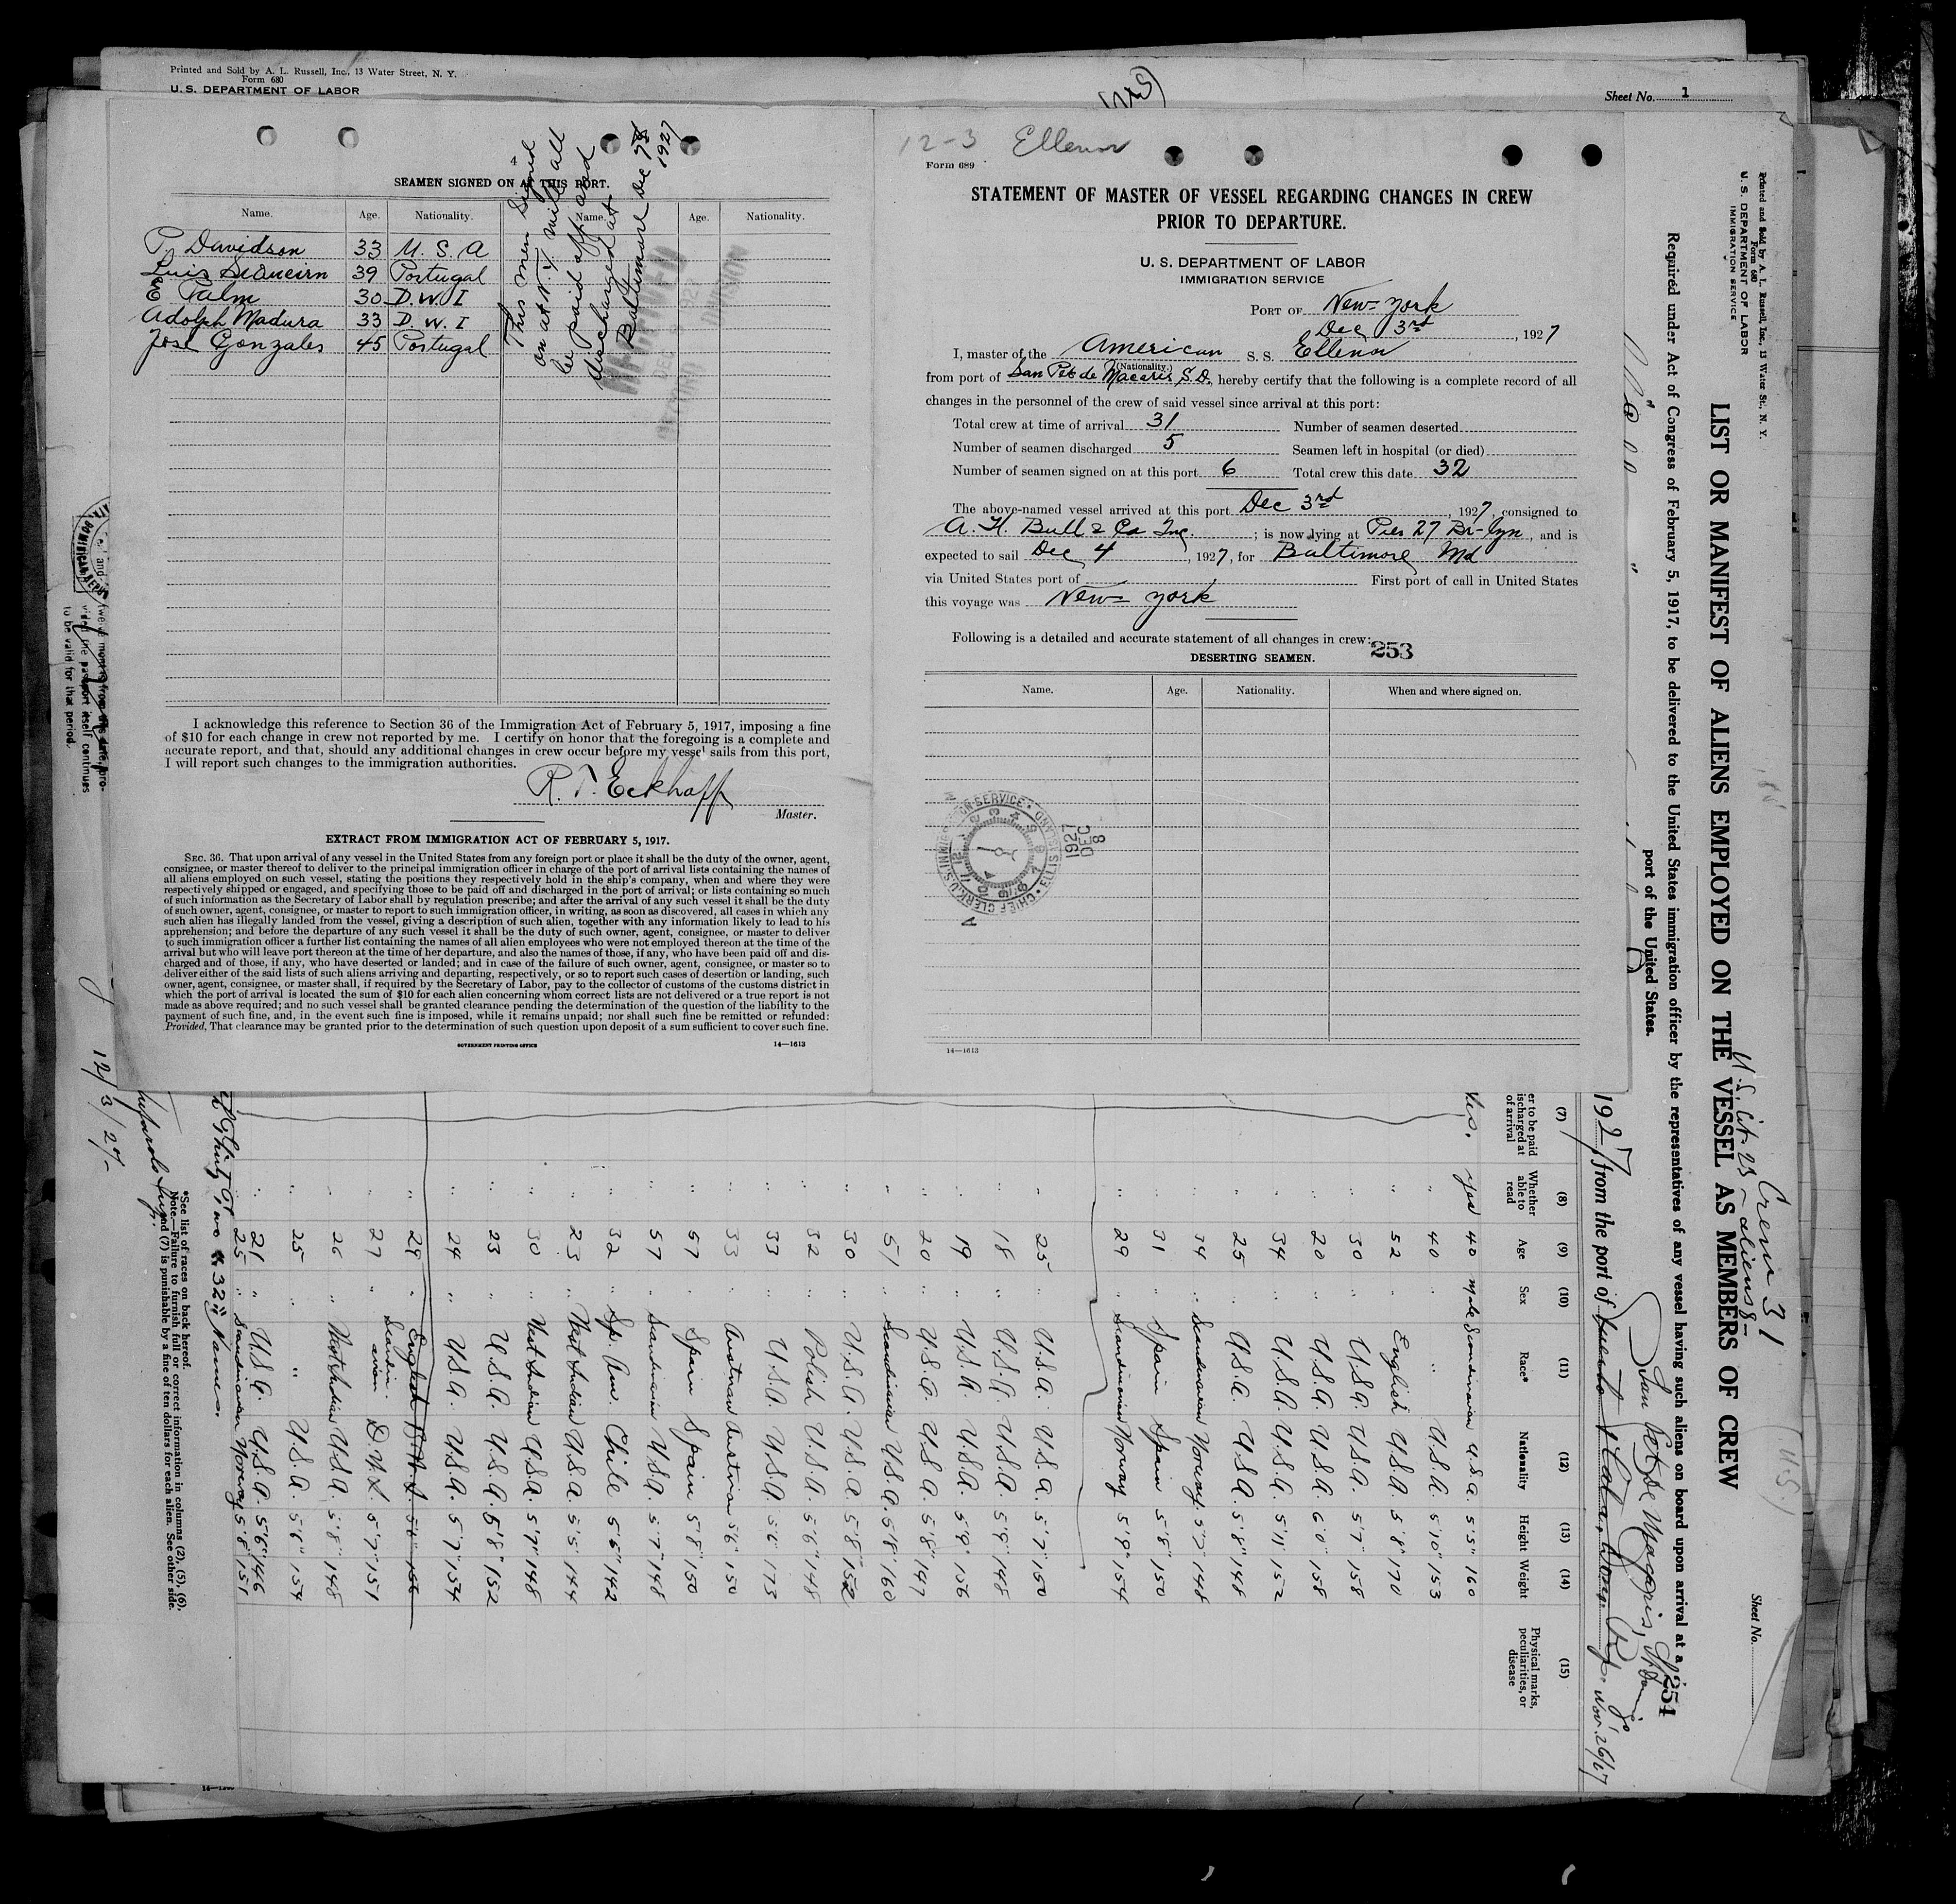 Printed and Sold by A. L. Russell, Inc., 13 Water Street, N. Y.
Form 680
U. S. DEPARTMENT OF LABOR
Sheet No. 1
4
SEAMEN SIGNED ON AT THIS PORT.
Name. Age. Nationality. Name. Age. Nationality.
P. Davidson 33 U. S. A
Luis 39 Portugal
E Palm 30 D. W. I
Adolph Madura 33 D. W. I
José Gonzales 45 Portugal
This men signed
on at N. Y. will all
be paid off and
discharged at
Baltimore Dec
1927
I acknowledge this reference to Section 36 of the Immigration Act of February 5, 1917, imposing a fine
of $10 for each change in crew not reported by me. I certify on honor that the foregoing is a complete and
accurate report, and that, should any additional changes in crew occur before my vessel sails from this port,
I will report such changes to the immigration authorities.
R. T. Eckhoff
Master.
EXTRACT FROM IMMIGRATION ACT OF FEBRUARY 5, 1917.
SEC. 36. That upon arrival of any vessel in the United States from any foreign port or place it shall be the duty of the owner, agent,
consignee, or master thereof to deliver to the principal immigration officer in charge of the port of arrival lists containing the names of
all aliens employed on such vessel, stating the positions they respectively hold in the ship's company, when and where they were
respectively shipped or engaged, and specifying those to be paid off and discharged in the port of arrival; or lists containing so much
of such information as the Secretary of Labor shall by regulation prescribe; and after the arrival of any such vessel it shall be the duty
of such owner, agent, consignee, or master to report to such immigration officer, in writing, as soon as discovered, all cases in which any
such alien has illegally landed from the vessel, giving a description of such alien, together with any information likely to lead to his
apprehension; and before the departure of any such vessel it shall be the duty of such owner, agent, consignee, or master to deliver
to such immigration officer a further list containing the names of all alien employees who were not employed thereon at the time of the
arrival but who will leave port thereon at the time of her departure, and also the names of those, if any, who have been paid off and dis-
charged and of those, if any, who have deserted or landed; and in case of the failure of such owner, agent, consignee, or master so to
deliver either of the said lists of such aliens arriving and departing, respectively, or so to report such cases of desertion or landing, such
owner, agent, consignee, or master shall, if required by the Secretary of Labor, pay to the collector of customs of the customs district in
which the port of arrival is located the sum of $10 for each alien concerning whom correct lists are not delivered or a true report is not
made as above required; and no such vessel shall be granted clearance pending the determination of the question of the liability to the
payment of such fine, and, in the event such fine is imposed, while it remains unpaid; nor shall such fine be remitted or refunded:
Provided, That clearance may be granted prior to the determination of such question upon deposit of a sum sufficient to cover such fine.
GOVERNMENT PRINTING OFFICE 14—1613
12-3 Ellenor
Form 689
STATEMENT OF MASTER OF VESSEL REGARDING CHANGES IN CREW
PRIOR TO DEPARTURE.
U. S. DEPARTMENT OF LABOR
IMMIGRATION SERVICE
PORT OF New York
Dec 3rd, 1927
I, master of the American S. S. Ellenor
(Nationality.)
from port of San Pet de Macaris S. D., hereby certify that the following is a complete record of all
changes in the personnel of the crew of said vessel since arrival at this port:
Total crew at time of arrival 31 Number of seamen deserted
Number of seamen discharged 5 Seamen left in hospital (or died)
Number of seamen signed on at this port 6 Total crew this date 32
The above-named vessel arrived at this port Dec 3rd, 1927, consigned to
A. H. Bull & Co Inc.; is now lying at Pier 27 Br-lyn, and is
expected to sail Dec 4, 1927, for Baltimore Md
via United States port of First port of call in United States
this voyage was New York
Following is a detailed and accurate statement of all changes in crew:
253
DESERTING SEAMEN.
Name. Age. Nationality. When and where signed on.
CHIEF CLERK U.S. IMMIGRATION SERVICE ELLIS ISLAND
1927 DEC 8
14—1613
Printed and Sold by A. L. Russell, Inc., 13 Water St., N. Y.
Form 680
U. S. DEPARTMENT OF LABOR
IMMIGRATION SERVICE
Sheet No.
Crew 31
U.S. Cit. 23 - aliens 8-
LIST OR MANIFEST OF ALIENS EMPLOYED ON THE VESSEL AS MEMBERS OF CREW
Required under Act of Congress of February 5, 1917, to be delivered to the United States immigration officer by the representatives of any vessel having such aliens on board upon arrival at a
254
port of the United States.
1927 from the port of
(7) (8) (9) (10) (11) (12) (13) (14) (15)
er to be paid discharged at of arrival
Whether able to read
Age
Sex
Race*
Nationality
Height
Weight
Physical marks, peculiarities, or disease
Yes. Yes 40 male Scandinavian U.S.A. 5'5" 160
" 40 " " U.S.A. 5'10" 153
" 52 " English U.S.A. 5'8" 170
" 30 " U.S.A. U.S.A. 5'7" 158
" 20 " U.S.A. U.S.A. 6'0" 158
" 34 " U.S.A. U.S.A. 5'11" 152
" 25 " U.S.A. U.S.A. 5'8" 148
" 34 " Scandinavian Norway 5'7" 148
" 31 " Spain Spain 5'8" 150
" 29 " Scandinavian Norway 5'9" 154
" 25 " U.S.A. U.S.A. 5'7" 150
" 18 " U.S.A. U.S.A. 5'9" 148
" 19 " U.S.A. U.S.A. 5'9" 156
" 20 " U.S.A. U.S.A. 5'8" 147
" 51 " Scandinavian U.S.A. 5'8" 160
" 30 " U.S.A. U.S.A. 5'8" 152
" 32 " Polish U.S.A. 5'6" 148
" 33 " U.S.A. U.S.A. 5'6" 173
" 33 " Austrian Austrian 5'6" 150
" 57 " Spain Spain 5'8" 150
" 57 " Scandinavian U.S.A. 5'7" 148
" 32 " Sp. Am. Chile 5'6" 142
" 23 " West Indian U.S.A. 5'5" 144
" 30 " West Indian U.S.A. 5'7" 148
" 23 " U.S.A. U.S.A. 5'8" 152
" 24 " U.S.A. U.S.A. 5'7" 154
" 29 " English
" 27 " Scandinavian D.W.I. 5'7" 151
" 26 " West Indian U.S.A. 5'8" 148
" 25 " " U.S.A. 5'6" 154
" 21 " U.S.A. U.S.A. 5'6" 146
25 " Scandinavian Norway 5'8" 151
Thirty Two "32" Names.
*See list of races on back hereof.
Note.—Failure to furnish full or correct information in columns (2), (5), (6),
and (7) is punishable by a fine of ten dollars for each alien. See other side.
12/3/27-
the passport itself continues
to be valid for that period.